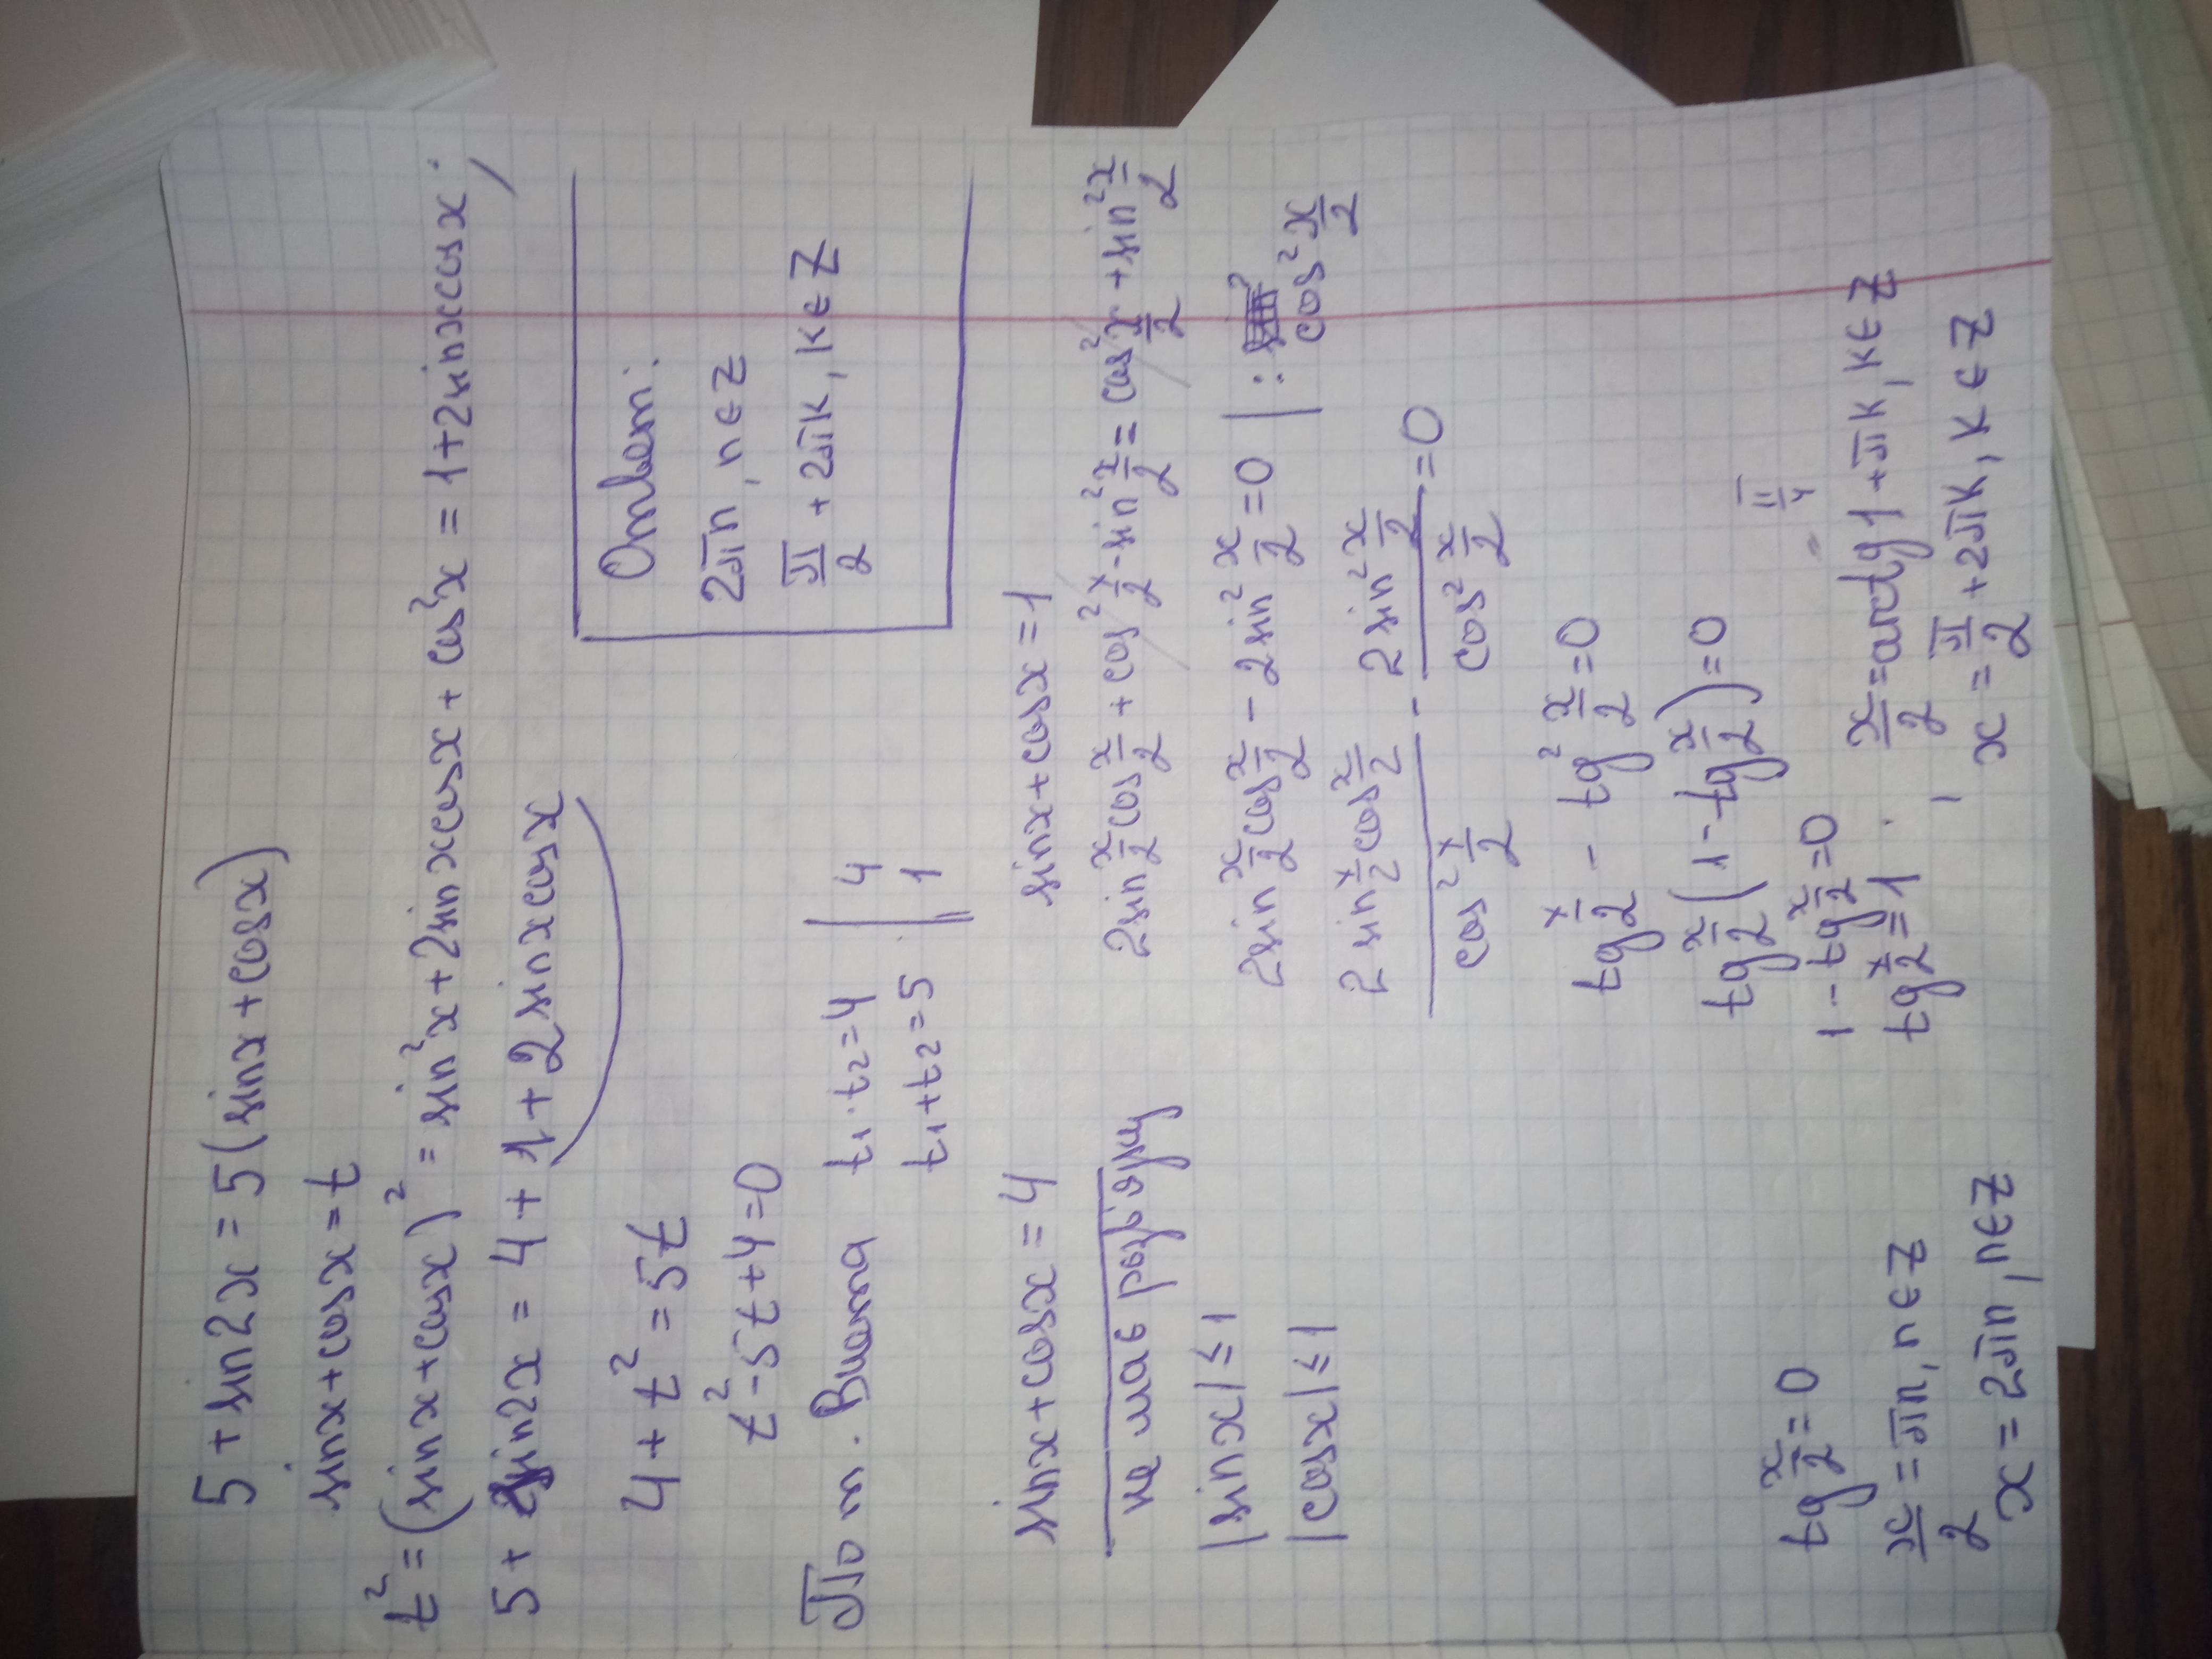 5 + sin2x = 5(sinx + cosx)
sinx + cosx = t
t² = (sinx + cosx)² = sin²x + 2sinxcosx + cos²x = 1 + 2sinxcosx;
5 + sin2x = 4 + 1 + 2sinxcosx
4 + t² = 5t
t² - 5t + 4 = 0
По т. Виета t₁ · t₂ = 4 | 4
t₁ + t₂ = 5 | 1
Ответ:
2πn, n ∈ Z
π/2 + 2πk, k ∈ Z
sinx + cosx = 4
|sinx| ≤ 1
|cosx| ≤ 1
sinx + cosx = 1
2sin x/2 cos x/2 + cos² x/2 - sin² x/2 = cos² x/2 + sin² x/2
2sin x/2 cos x/2 - 2sin² x/2 = 0 | : cos² x/2
2sin x/2 cos x/2 / cos² x/2 - 2sin² x/2 / cos² x/2 = 0
tg x/2 - tg² x/2 = 0
tg x/2 (1 - tg x/2) = 0
tg x/2 = 0
x/2 = πn, n ∈ Z
x = 2πn, n ∈ Z
1 - tg x/2 = 0
tg x/2 = 1
π/4
x/2 = arctg 1 + πk, k ∈ Z
x = π/2 + 2πk, k ∈ Z